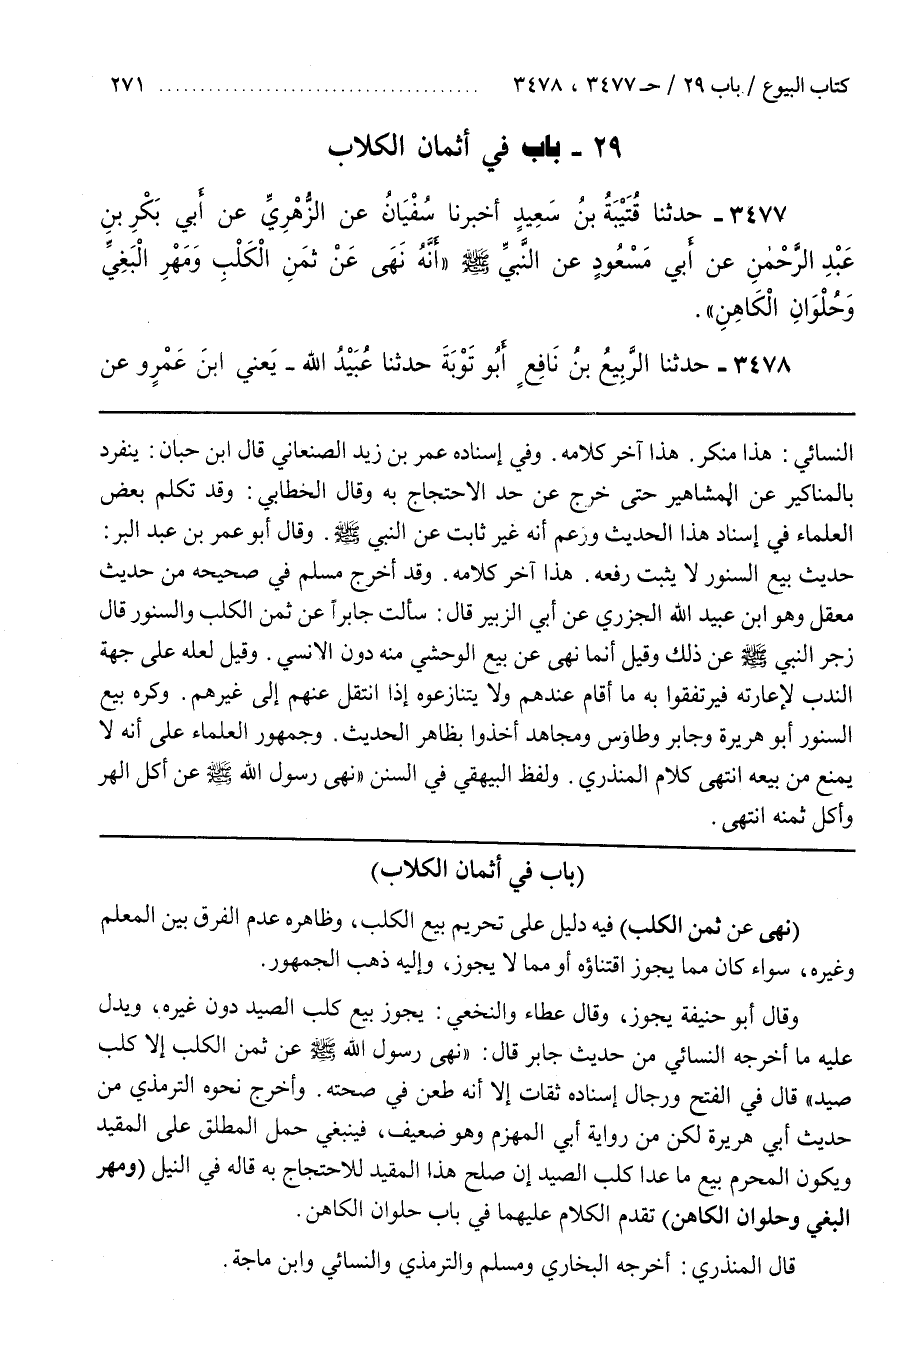 كتاب البيوع / باب ٢٩ / حـ ٣٤٧٧ ، ٣٤٧٨ ........................................ ٢٧١
٢٩ ـ باب في أثمان الكلاب
٣٤٧٧ ـ حدثنا قُتَيْبَةُ بنُ سَعِيدٍ أخبرنا سُفْيَانُ عن الزُّهْرِيِّ عن أَبي بَكْرِ بنِ
عَبْدِ الرَّحْمٰنِ عن أَبي مَسْعُودٍ عن النَّبيِّ ﷺ «أَنَّهُ نَهَى عَنْ ثمَنِ الْكَلْبِ وَمَهْرِ الْبَغِيِّ
وَحُلْوَانِ الْكَاهِنِ» .
٣٤٧٨ ـ حدثنا الرَّبِيعُ بنُ نَافِعٍ أَبُو تَوْبَةَ حدثنا عُبَيْدُ الله ـ يَعني ابنَ عَمْرٍو عن
النسائي : هذا منكر . هذا آخر كلامه . وفي إسناده عمر بن زيد الصنعاني قال ابن حبان : ينفرد
بالمناكير عن المشاهير حتى خرج عن حد الاحتجاج به وقال الخطابي : وقد تكلم بعض
العلماء في إسناد هذا الحديث وزعم أنه غير ثابت عن النبي ﷺ . وقال أبو عمر بن عبد البر :
حديث بيع السنور لا يثبت رفعه . هذا آخر كلامه . وقد أخرج مسلم في صحيحه من حديث
معقل وهو ابن عبيد الله الجزري عن أبي الزبير قال : سألت جابراً عن ثمن الكلب والسنور قال
زجر النبي ﷺ عن ذلك وقيل أنما نهى عن بيع الوحشي منه دون الانسي . وقيل لعله على جهة
الندب لإعارته فيرتفقوا به ما أقام عندهم ولا يتنازعوه إذا انتقل عنهم إلى غيرهم . وكره بيع
السنور أبو هريرة وجابر وطاوس ومجاهد أخذوا بظاهر الحديث . وجمهور العلماء على أنه لا
يمنع من بيعه انتهى كلام المنذري . ولفظ البيهقي في السنن «نهى رسول الله ﷺ عن أكل الهر
وأكل ثمنه انتهى .
(باب في أثمان الكلاب)
(نهى عن ثمن الكلب) فيه دليل على تحريم بيع الكلب، وظاهره عدم الفرق بين المعلم
وغيره، سواء كان مما يجوز اقتناؤه أو مما لا يجوز، وإليه ذهب الجمهور.
وقال أبو حنيفة يجوز، وقال عطاء والنخعي : يجوز بيع كلب الصيد دون غيره، ويدل
عليه ما أخرجه النسائي من حديث جابر قال : «نهى رسول الله ﷺ عن ثمن الكلب إلا كلب
صيد» قال في الفتح ورجال إسناده ثقات إلا أنه طعن في صحته . وأخرج نحوه الترمذي من
حديث أبي هريرة لكن من رواية أبي المهزم وهو ضعيف، فينبغي حمل المطلق على المقيد
ويكون المحرم بيع ما عدا كلب الصيد إن صلح هذا المقيد للاحتجاج به قاله في النيل (ومهر
البغي وحلوان الكاهن) تقدم الكلام عليهما في باب حلوان الكاهن .
قال المنذري : أخرجه البخاري ومسلم والترمذي والنسائي وابن ماجة .